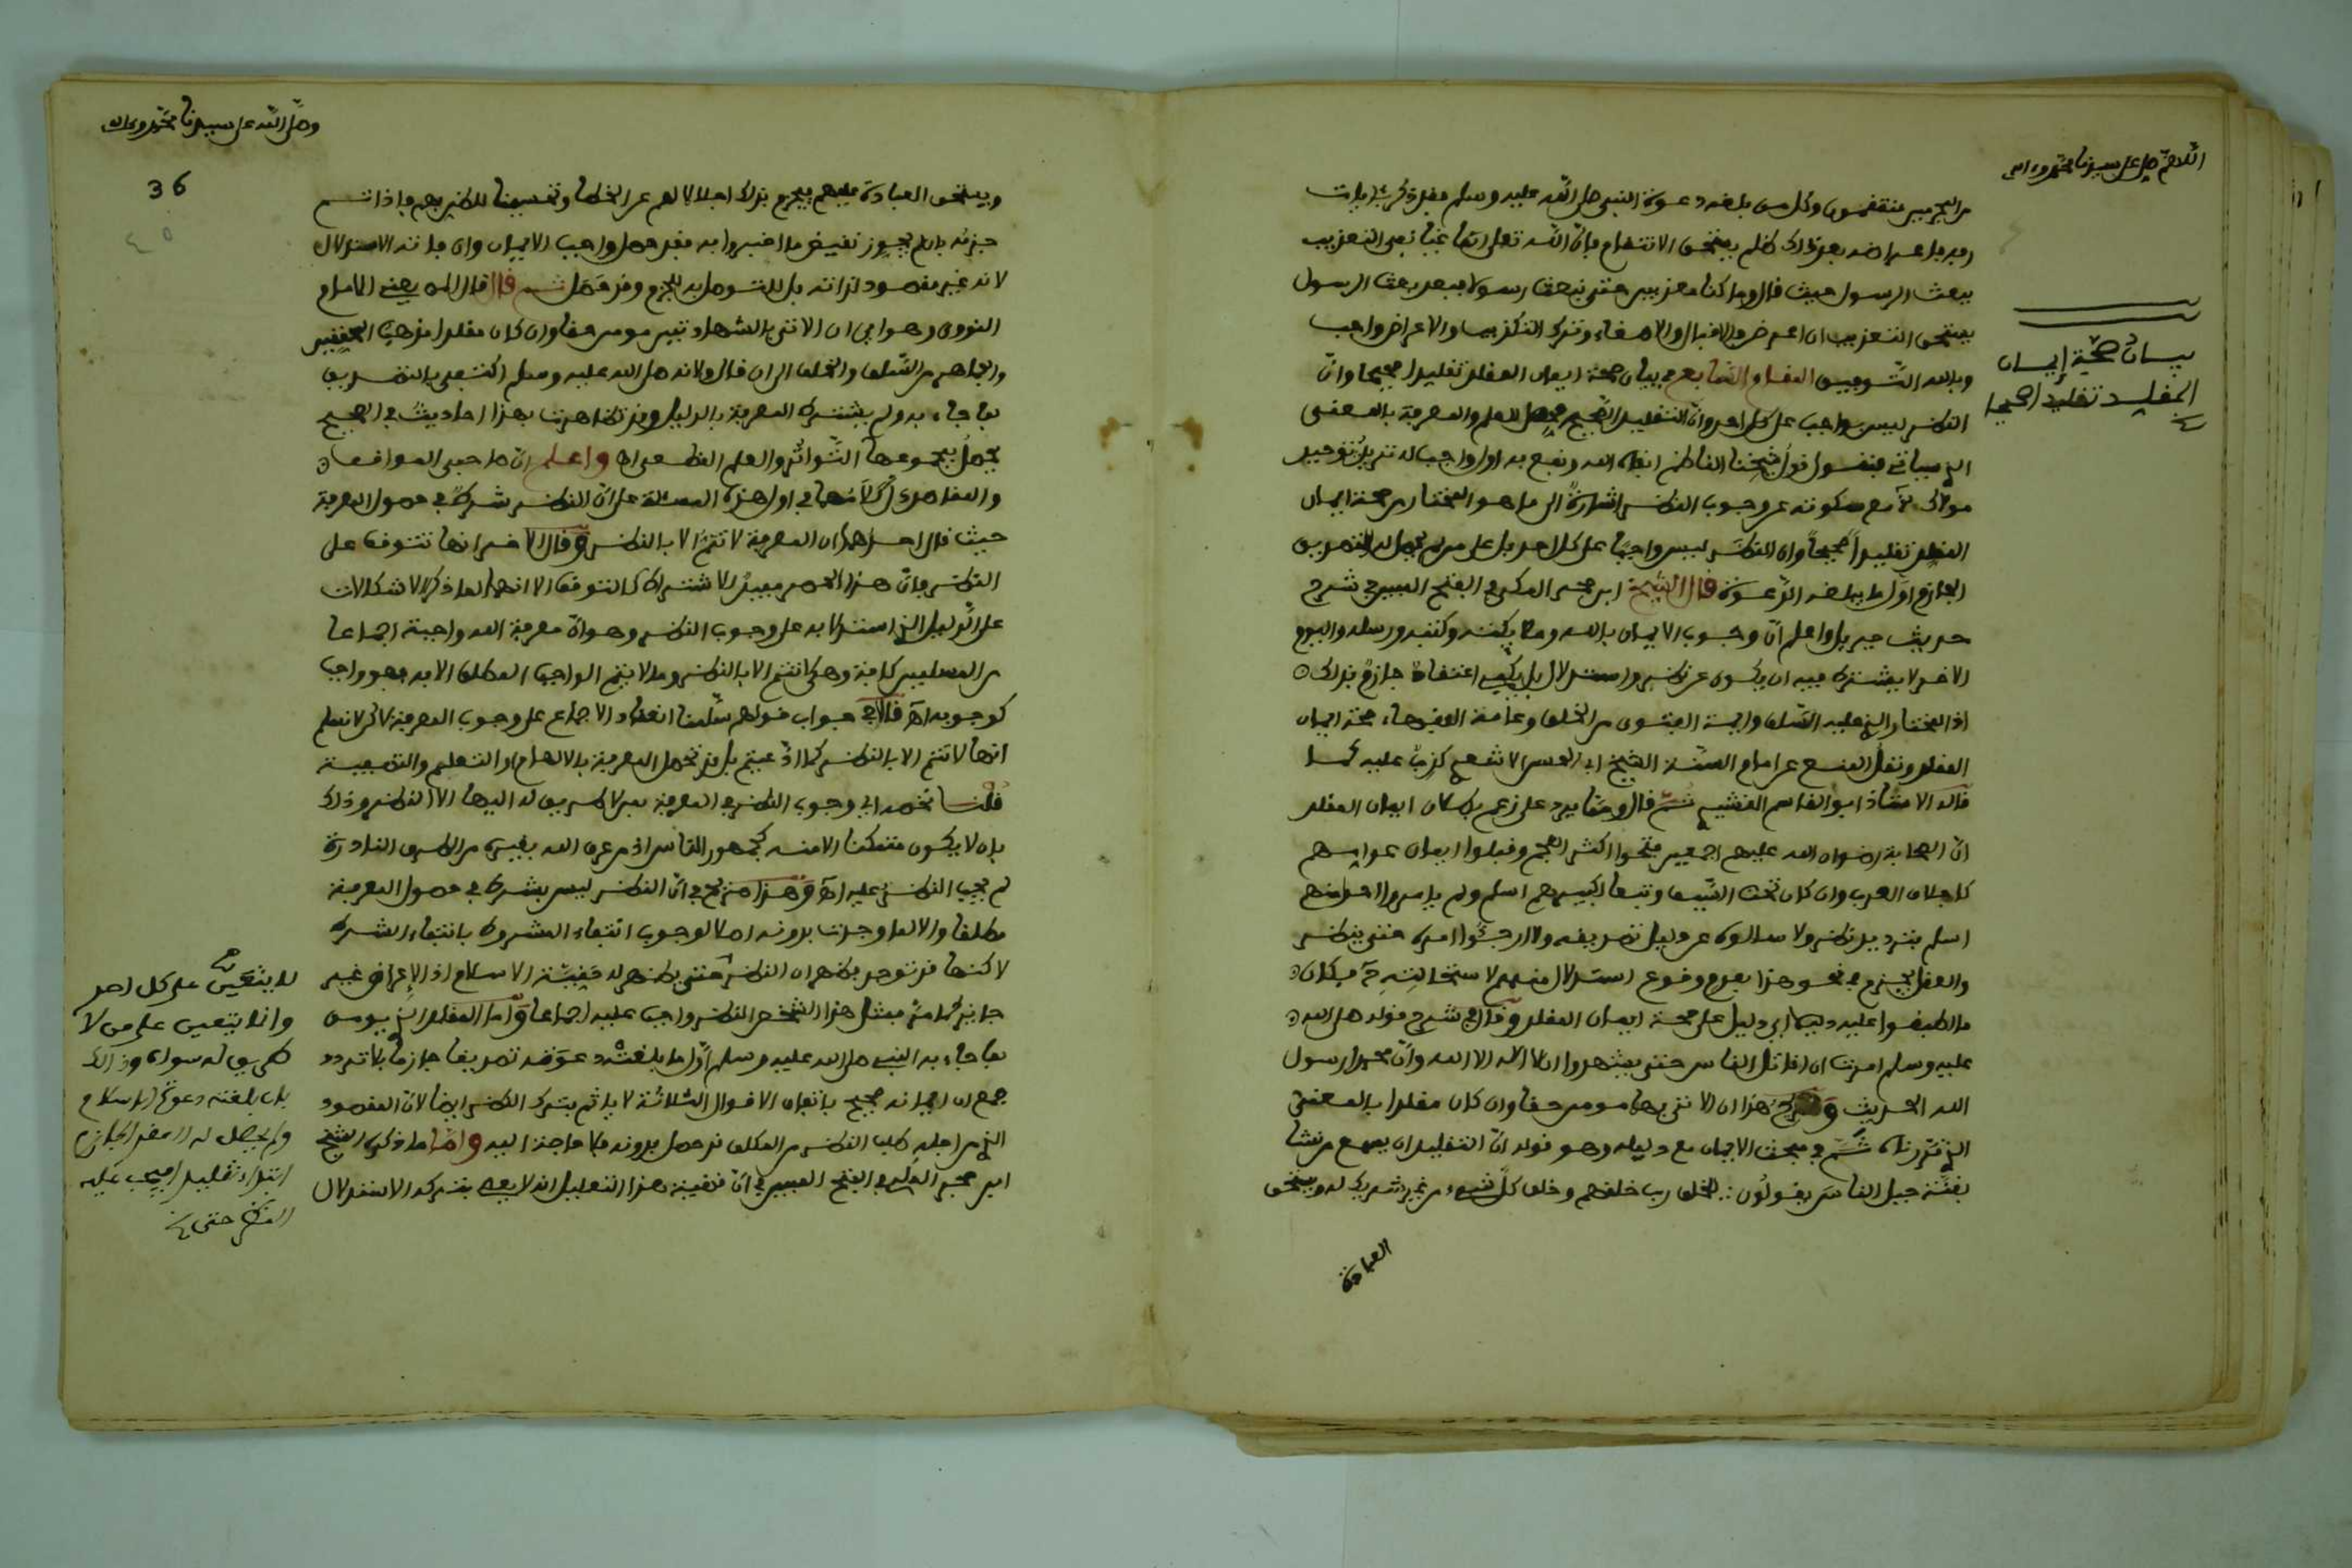 اللهم صل على سيدنا محمد وءاله
من المجرمين منتقمون وكل من بلغه دعوة النبي صلى الله عليه وسلم فقد ذكر بآيات
ربه فإعراضه بعد ذلك ظلم يستحق الانتقام فإن الله تعالى إنما نفى التعذيب
ببعث الرسول حيث قال وما كنا معذبين حتى نبعث رسولا فبعد بعث الرسول
يستحق التعذيب ان اعرض والاقبال والاصغاء وترك التكذيب والاعراض واجب
وبالله التوفيق المقام السابع في بيان صحة ايمان المقلد تقليدا صحيحا وأن
النظر ليس بواجب على كل احد وأن التقليد الصحيح محصل للعلم والمعرفة بالمعنى
الذي سياتي فنقول قول شيخنا الناظم ابقاه الله ونفع به اول واجب له تنزيل توحيد
مولاك مع سكوته عن وجوب النظر اشارة الى ما هو المختار من صحة ايمان
المقلد تقليدا صحيحا وان النظر ليس واجبا على كل احد بل على من لم يحصل له التصديق
الجازم اول ما يبلغه الدعوة قال الشيخ ابن حجر المكي في الفتح المبين في شرح
حديث جبريل واعلم أن وجوب الايمان بالله وملايكته وكتبه ورسله واليوم
الاخر لا يشترط فيه ان يكون عن نظر واستدلال بل يكفي اعتقاد جازم بذلك
اذ المختار الذي عليه السلف وايمة الفتوى من الخلف وعامة الفقهاء صحة ايمان
المقلد ونقل المنع عن امام السنة الشيخ ابي الحسن الاشعري كذب عليه كما
قاله الاستاذ ابو القاسم القشيري ثم قال ومما يرد على زعم بطلان ايمان المقلد
ان الصحابة رضوان الله عليهم اجمعين فتحوا اكثر العجم وقبلوا ايمان عوامهم
كاجلاف العرب وان كان تحت السيف وتبعا لكبير منهم اسلم ولم يامروا احدا منهم
اسلم بترديد نظر ولا سالوه عن دليل تصديقه ولا ارجئوا امره حتى ينظر
والعقل يجزم في نحو هذا بعدم وقوع استدلال منهم لاستحالته ح فكان
ما اطبقوا عليه دليلا اي دليل على صحة ايمان المقلد وقال في شرح قوله صلى الله
عليه وسلم امرت ان اقاتل الناس حتى يشهدوا ان لا اله الا الله وأن محمدا رسول
الله الحديث هذا ان الآتي بهما مومن حقا وان كان مقلدا بالمعنى
الذي قررناه في مبحث الايمان مع دليله وهو قوله ان التقليد ان يسمع من نشا
بقنة جبل الناس يقولون للخلق رب خلقهم وخلق كل شيء من غير شريك له ويستحق
العبادة
بيان صحة إيمان
المقلد تقليدا صحيحا
وصلى الله على سيدنا محمد وءاله
36
ويستحق العبادة عليهم فيجزم بذلك اجلالا لهم عن الخطا وتحسينا للظن بهم فاذا تم
جزمه بان لم يجوز نقيض ما اخبروا به فقد حصل واجب الايمان وان فاته الاستدلال
لانه غير مقصود لذاته بل للتوصل به للجزم وقد حصل ثم قال قال يعني الامام
النووي وهو اي ان الآتي بالشهادتين مومن حقا وان كان مقلدا مذهب المحققين
والجماهير من السلف والخلف الى ان قال ولانه صلى الله عليه وسلم اكتفى بالتصديق
بما جاء به ولم يشترط المعرفة بالدليل وقد تظاهرت بهذا احاديث في الصحيح
يحصل بمجموعها التواتر والعلم القطعي اه واعلم ان صاحبي المواقف
والمقاصد في اول هذه المسئلة على أن النظر شرط في حصول المعرفة
حيث قال احدهما ان المعرفة لا تتم الا بالنظر وقال الاخر انها تتوقف على
النظر فان هذا الحصر يفيد الاشتراط كالتوقف الا انهما لما ذكرا الاشكالات
على الدليل الذي استدلا به على وجوب النظر وهو أن معرفة الله واجبة اجماعا
من المسلمين كافة وهي لا تتم الا بالنظر وما لا يتم الواجب المطلق الا به فهو واجب
كوجوبه اه قالا في جواب قولهم سلمنا انعقاد الاجماع على وجوب المعرفة لاكن لا نسلم
انها لا تتم الا بالنظر كما ادعيتم بل قد تحصل المعرفة بالالهام او التعليم والتصفية
قلنا نخص اي وجوب النظر في المعرفة بمن لا طريق له اليها الا النظر وذلك
بان لا يكون متمكنا الا منه كجمهور الناس اذ من عرف الله بغيره من الطرق النادرة
لم يجب النظر عليه اه وهذا صريح في أن النظر ليس بشرط في حصول المعرفة
مطلقا والا لما وجدت بدونه اصلا لوجوب انتفاء المشروط بانتفاء الشرط
لاكنها قد توجد بغيره ان النظر حتى يظهر له حقيقة الاسلام اذ الاعراض غير
جايز كما مر فمثل هذا الشخص النظر واجب عليه اجماعا وأما المقلد الذي يومن
بما جاء به النبي صلى الله عليه وسلم أول ما بلغته دعوته تصديقا جازما بلا تردد
جمع ان ايمانه صحيح باتفاق الاقوال الثلاثة لا ياثم بترك النظر ايضا لان المقصود
الذي من اجله طلب النظر من المكلف قد حصل بدونه فلا حاجة اليه وأما ما ذكره الشيخ
ابن حجر المكي في الفتح المبين في أن قضية هذا التعليل انه لا يعصي بتركه الاستدلال
لا يتعين على كل احد
وانما يتعين على من لا
طريق له سواه وذالك
بان بلغته دعوة الاسلام
ولم يحصل له العقد الجازم
ابتداء تقليدا فيجب عليه
النظر حتى